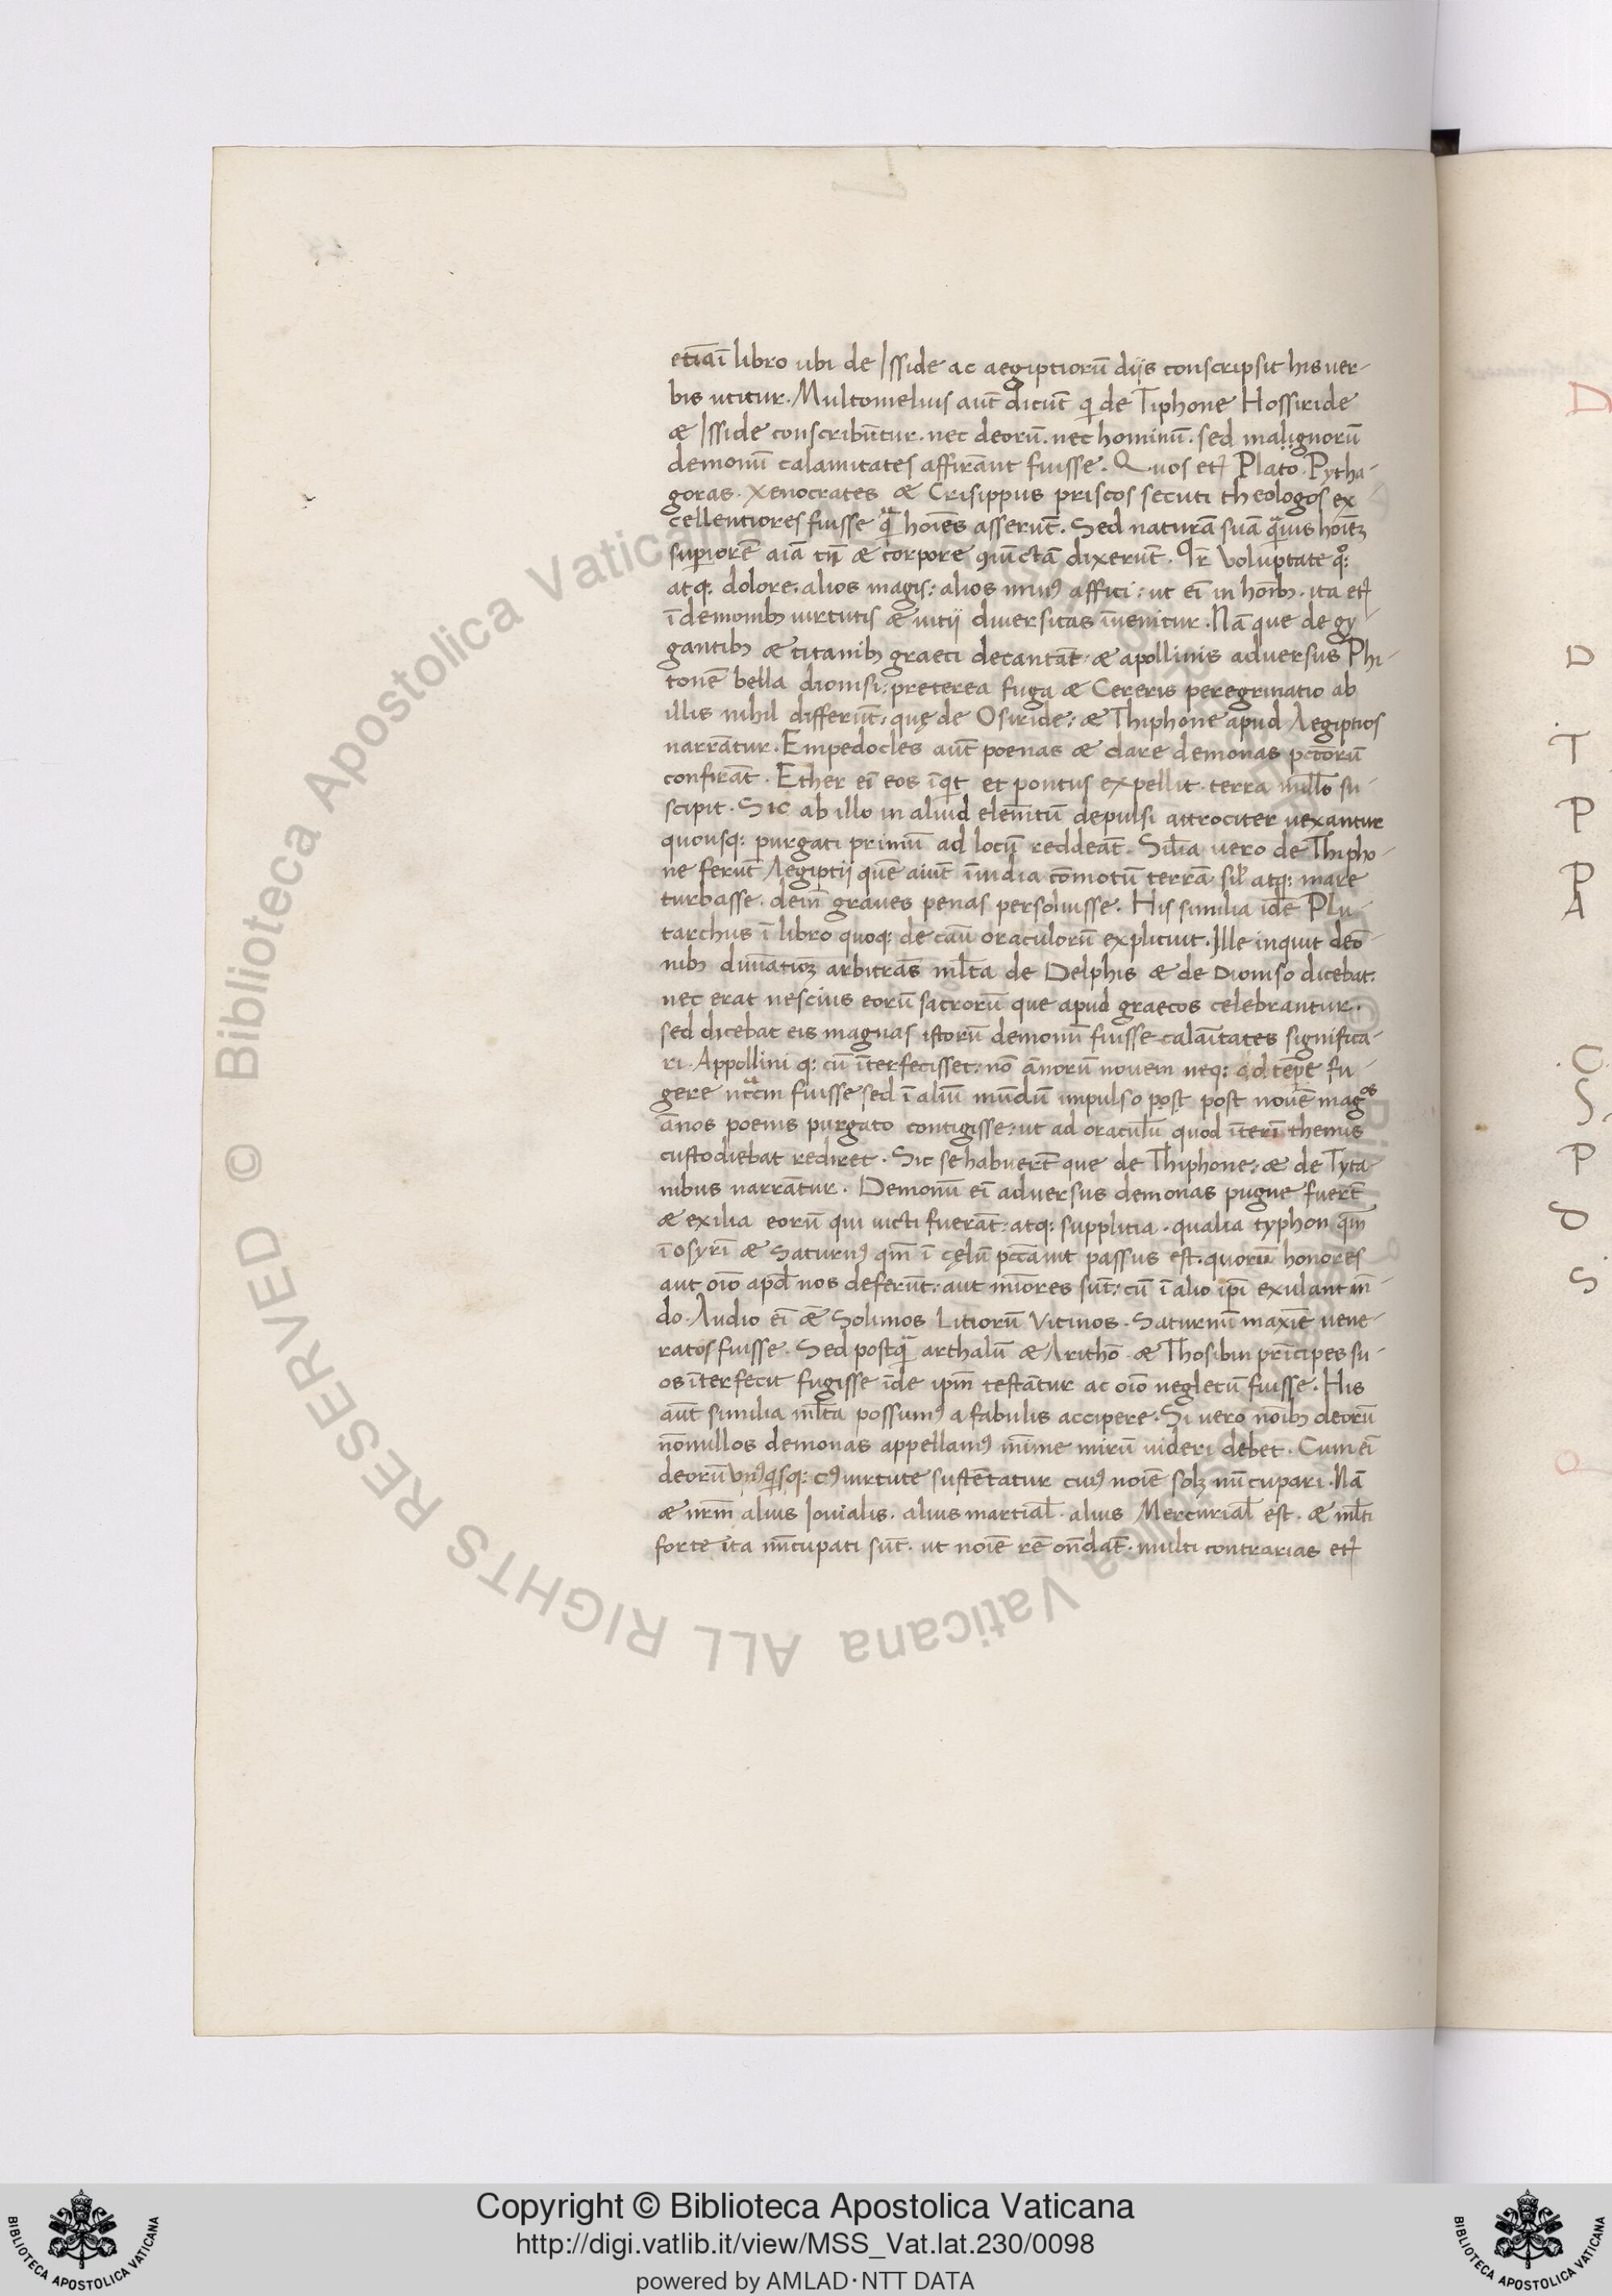 etiāī libro ubi de Isside ac aegiptiorū diis conscripsit his uer-
bis utitur. Multomelius aūt dicūt q de Tiphone Hossiride
æ Isside conscribūtur. nec deorū. nec hominū. sed malignorū
demonū calamitates affirāt fuisse. Quos et Plato. Pytha-
goras. Xenocrates æ Crisippus priscos secuti theologos ex
cellentiores fuisse q̄ hoīes asserūt. Sed naturā suā q̄uis hoīez
supiorē aīa tn̄ æ corpore ꝯiūctā dixerūt. Qr̄ voluptate qꝫ
atqꝫ dolore. alios magis: alios minꝰ affici: ut eī in hoībꝫ. ita et
ī demonibꝫ uirtutis æ uitii diuersitas īuenitur. Nā que de gy
gantibꝫ æ titanibꝫ graeci decantāt. æ apollinis adversus Phi-
tonē bella dionisi: preterea fuga æ Cereris peregrinatio ab
illis nihil differūt: quę de Osiride: æ Thiphone apud Aegiptios
narrātur. Empedocles aūt poenas æ dare demonas pctorū
confirāt. Ether eī eos īqit et pontus expellit. terra nullo su-
scipit. Sic ab illo in aliud elemtū depulsi attrociter uexantur
quousqꝫ purgati primū ad locū reddeāt. Silīa uero de Thipho-
ne ferūt Aegiptii quē aiūt īuidia cōmotū terrā sil̄ atqꝫ mare
turbasse. dein̄ graues penas persoluisse. His similia idē Plu-
tarchus ī libro quoqꝫ de cāu oraculorū explicuit. Ille inquit deō-
nibꝫ diuīatioꝫ arbitrās ml̄ta de Delphis æ de Dioniso dicebat:
nec erat nescius eorū sacrorū que apud graecos celebrantur.
sed dicebat eis magnas istorū demonū fuisse calaītates significa-
ri. Appollini qꝫ cū īterfecisset: nō ānorū nouem neqꝫ ad tēpe fu-
gere fuisse sed ī aliū mūdū impulso post post nouē mag os
ānos poenis purgato contigisse: ut ad oraculū quod īterī themis
custodiebat rediret. Sic se habuerūt que de Thiphone: æ de Tyta
nibus narrātur. Demonū eī adversus demonas pugne fuerūt
æ exilia eorū qui uicti fuerāt: atqꝫ supplicia. qualia typhon qm̄
ī osyrī æ Saturnꝰ qm̄ ī cęlū pccauit passus est. quorū honores
aut oīo apd̄ nos deferūt: aut mīores sūt: cū ī alio ipī exulant mū-
do. Audio eī æ Solimos Litiorū Vicinos. Saturnū maxīe uene-
ratos fuisse. Sed postq̄ arthalū æ Arithō æ Thosibin prīcipes su-
os īterfecit fugisse īde ipm̄ testātur ac oīo negletū fuisse. His
aūt similia ml̄ta possumꝰ a fabulis accipere. Si uero noībꝫ deorū
nōnullos demonas appellamꝰ mīme mirū uideri debet. Cum eī
deorū vnꝰqisqꝫ cꝰ uirtute sustētatur cuiꝰ noīe solꝫ nūcupari. Nā
æ nrm̄ alius Iouialis. alius martial̄. alius Mercurial̄ est. æ ml̄ti
forte ita nūcupati sūt. ut noīe rē on̄dāt. multi contrarias et
Copyright © Biblioteca Apostolica Vaticana
http://digi.vatlib.it/view/MSS_Vat.lat.230/0098
powered by AMLAD·NTT DATA
BIBLIOTECA APOSTOLICA VATICANA
BIBLIOTECA APOSTOLICA VATICANA
© Biblioteca Apostolica Vaticana ALL RIGHTS RESERVED
D
D
T
P
P
A
C
S
P
d
S